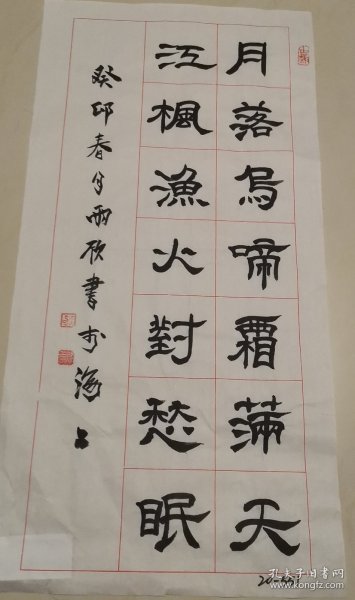 月落烏啼霜滿天
江楓漁火對愁眠
癸卯春月雨欣書於海上
孔夫子旧书网